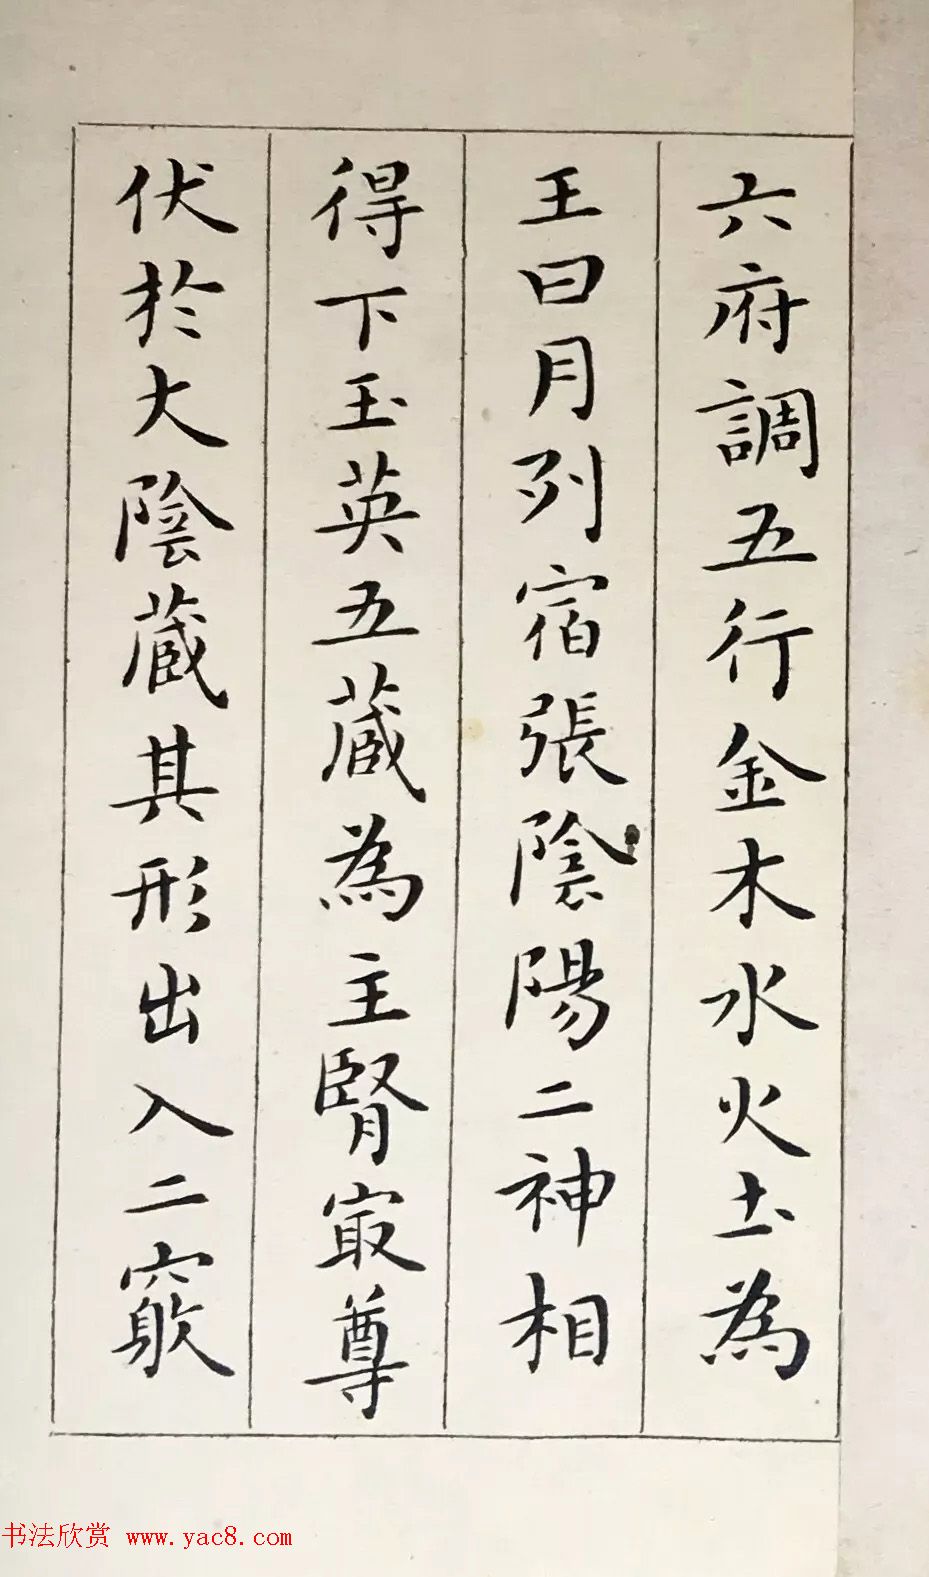 六府調五行金木水火土為
王日月列宿張陰陽二神相
得下玉英五蔵為主腎㝡尊
伏於大陰蔵其形出入二竅
书法欣赏 www.yac8.com